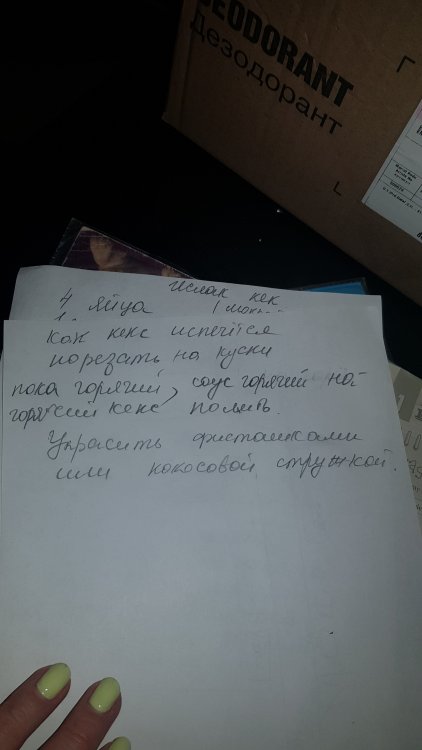 DEODORANT
Дезодорант
Ислак кек
4 яйца
как кекс испечётся
порезать на куски
пока горячий, соус горячий на
горячий кекс полить.
Украсить фисташками
или кокосовой стружкой.